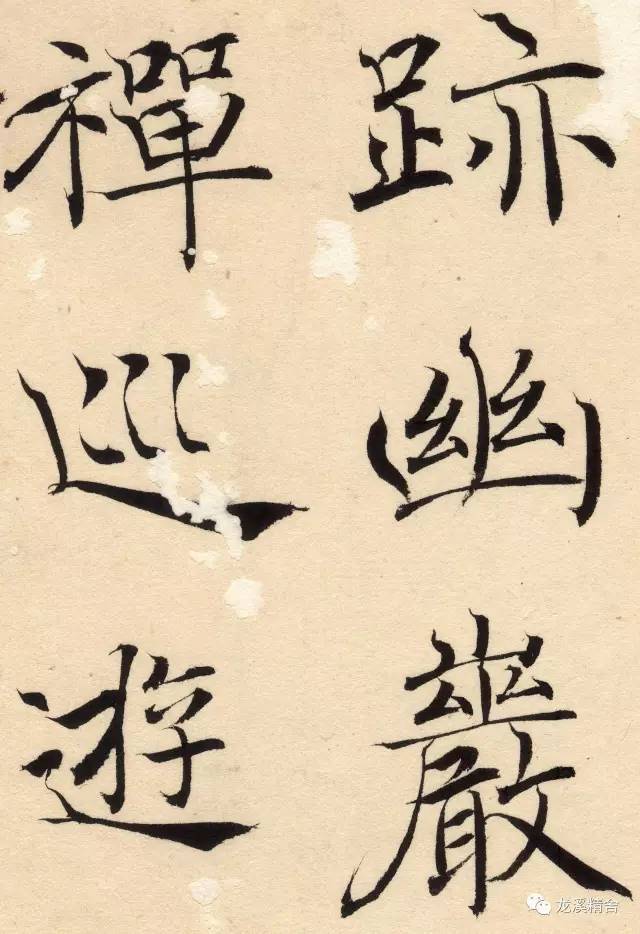 跡幽巖
禪巡遊
龙溪精舍